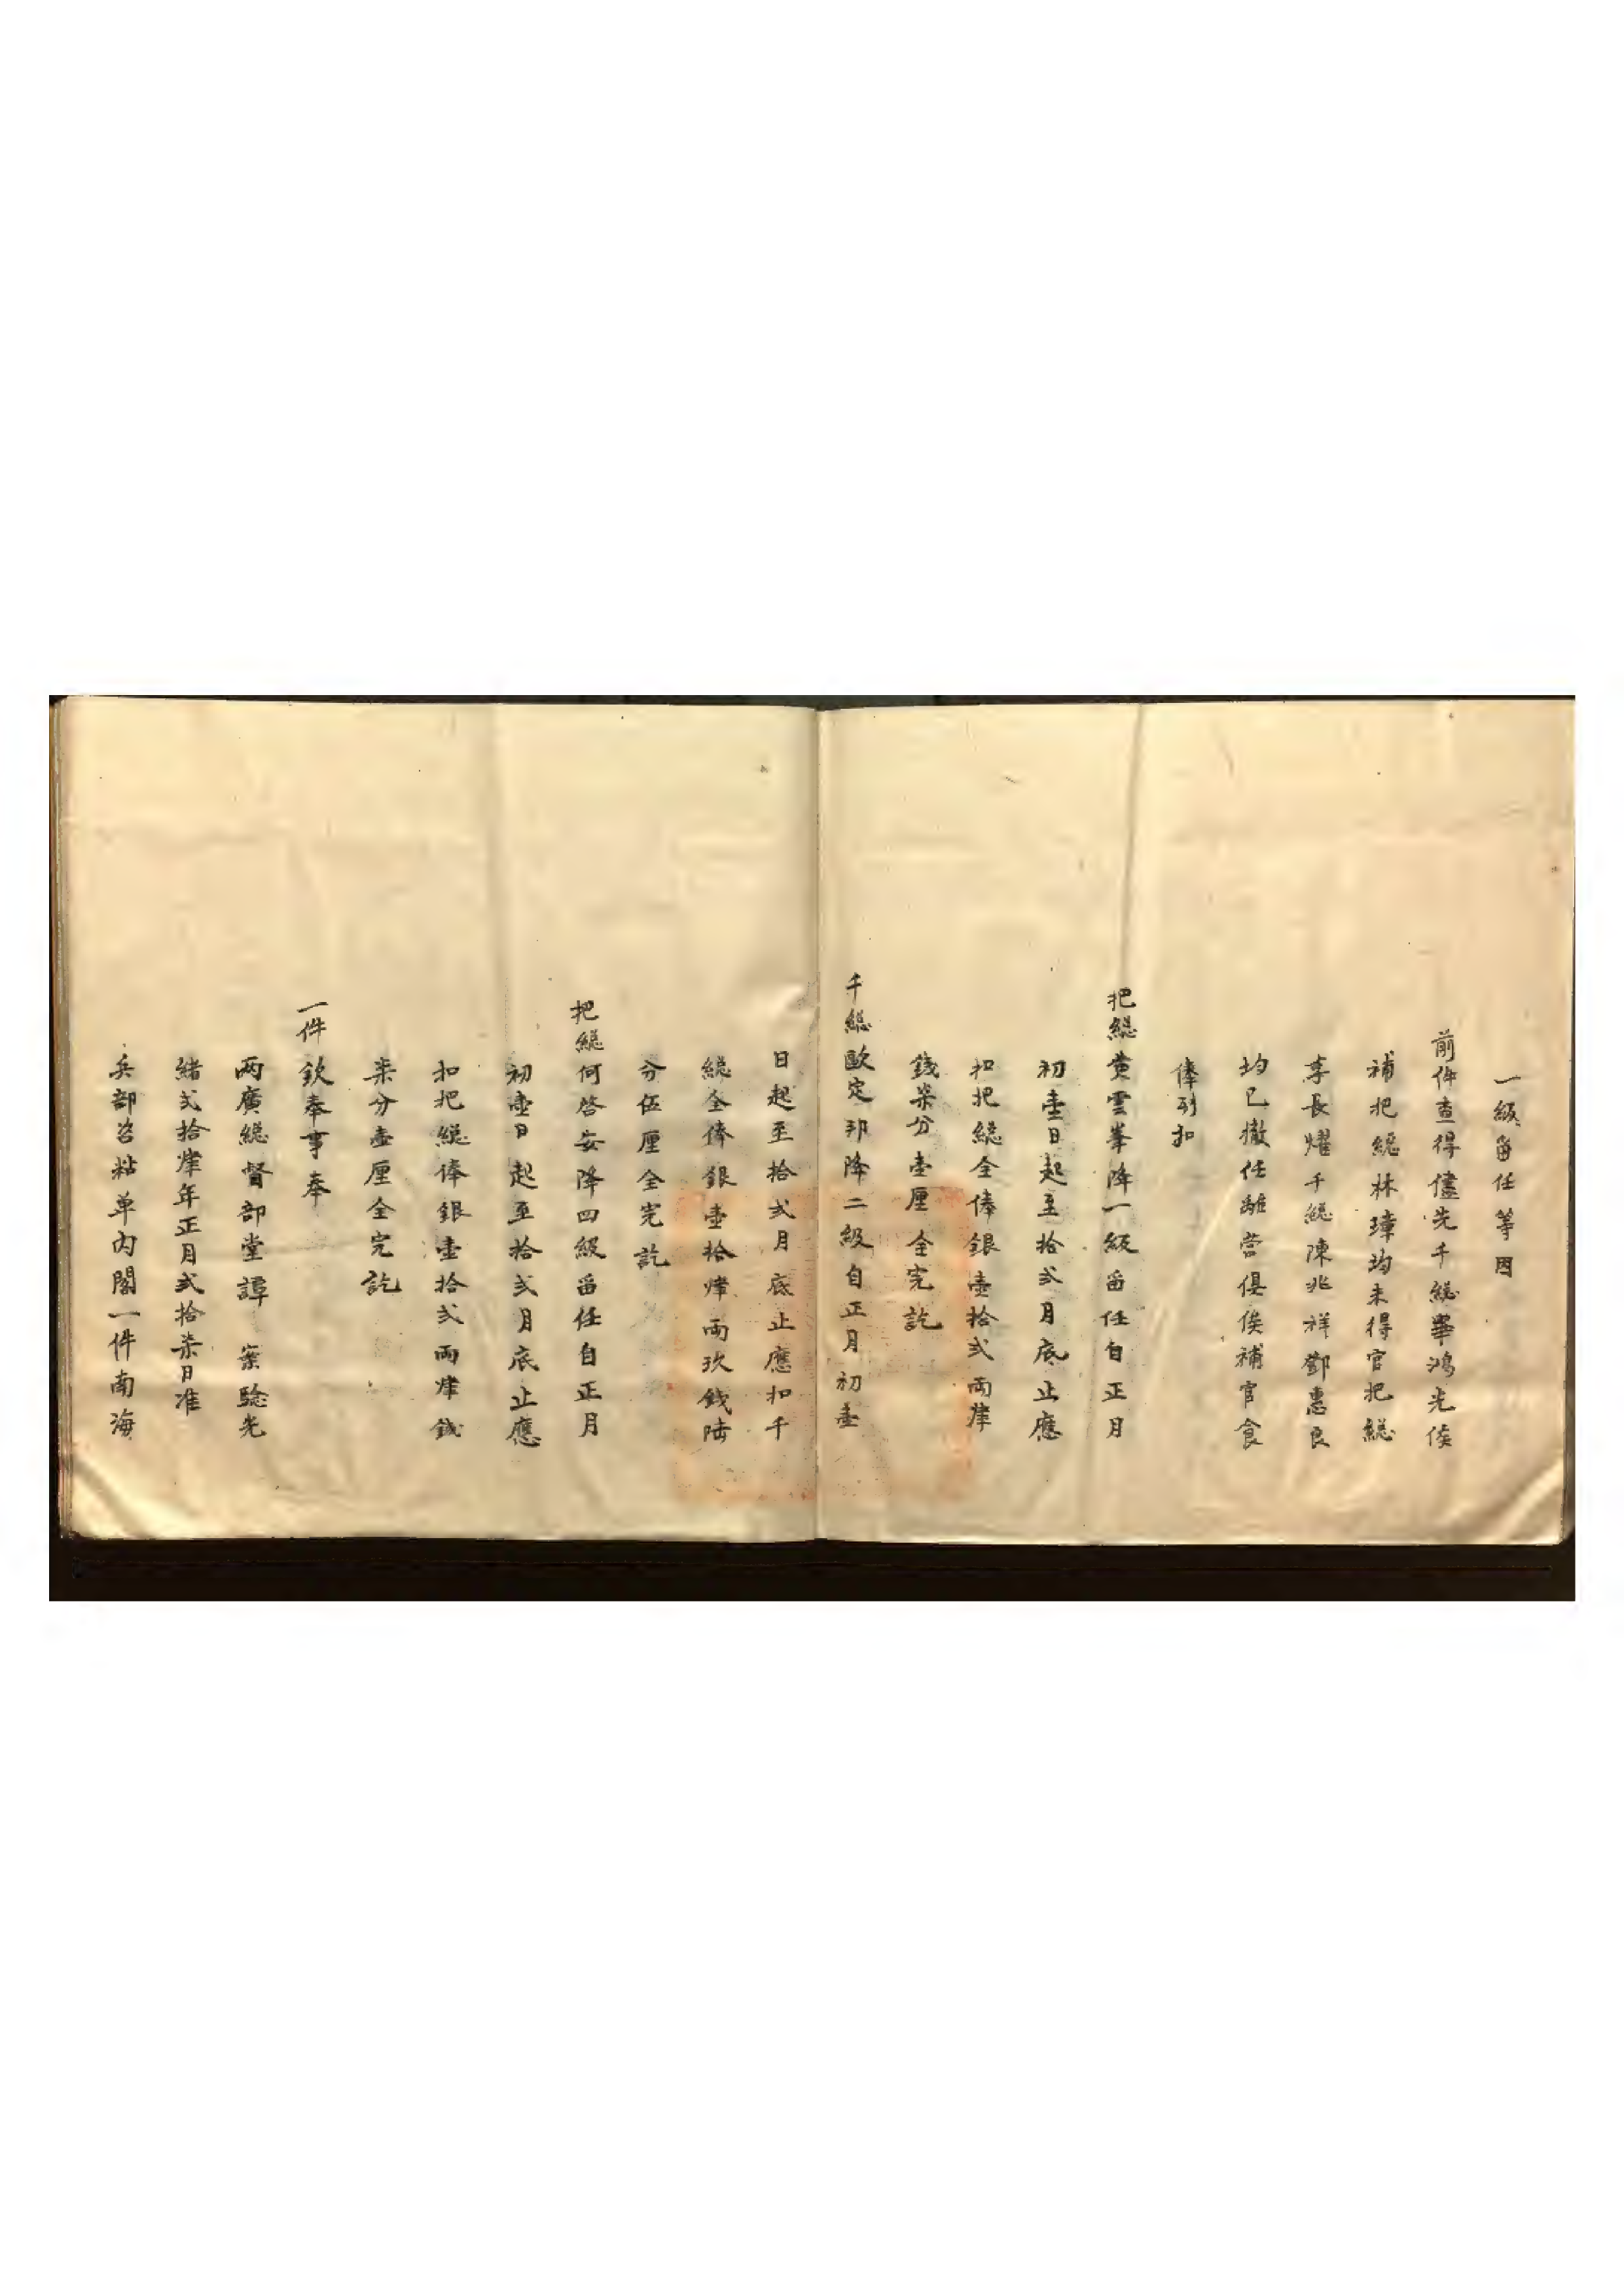 一級畱任等因
前件查得儘先千緫畢鴻光俟
補把緫林璋均未得官把緫
李長燿千緫陳兆祥鄧惠良
均已撤任離營俱俟補官食
俸列扣
把緫黄雲峯降一級畱任自正月
初壹日起至拾弍月底止應
扣把緫全俸銀壹拾弍兩肆
錢柒分壹厘全完訖
千緫歐定邦降二級自正月初壹
日起至拾弍月底止應扣千
緫全俸銀壹拾肆兩玖錢陸
分伍厘全完訖
把緫何啓安降四級畱任自正月
初壹日起至拾弍月底止應
扣把緫俸銀壹拾弍兩肆錢
柒分壹厘全完訖
一件欽奉事奉
兩廣緫督部堂譚 案驗光
緒弍拾肆年正月弍拾柒日准
兵部咨粘单内閣一件南海